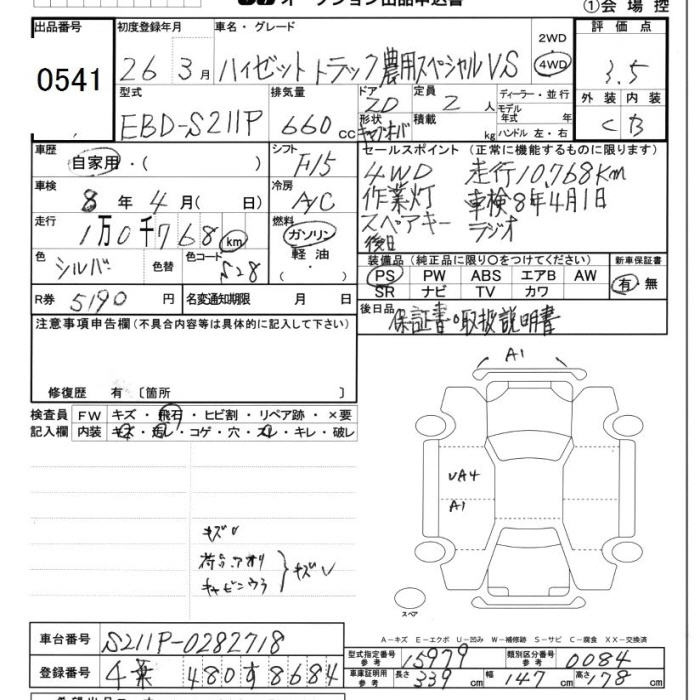 オークション出品申込書
①会場控
出品番号
0541
初度登録年月
26 3月
車名・グレード
ハイゼットトラック農用スペシャルVS
2WD
4WD
評価点
3.5
型式
EBD-S211P
排気量
660 cc
ドア
2D
形状
定員
2 人
積載
kg
ディーラー・並行
モデル
年式 年
ハンドル 左・右
外装 内装
C B
車歴
自家用・( )
シフト
F15
セールスポイント (正常に機能するものに限ります)
4WD 走行10,768Km
作業灯 車検8年4月1日
スペアキー ラジオ
後日
車検
8年 4月( 日)
冷房
A/C
走行
1万0千768 km
燃料
ガソリン
軽油
・
色
シルバ
色替
色コード
S28
装備品 (純正品に限り○をつけてください)
PS PW ABS エアB AW
SR ナビ TV カワ
新車保証書
有・無
R券 5190 円
名変通知期限 月 日
後日品 保証書・取扱説明書
注意事項申告欄(不具合内容等は具体的に記入して下さい)
修復歴 有 〔箇所
検査員
記入欄
FW キズ・飛石・ヒビ割・リペア跡・×要
内装 キズ・汚レ・コゲ・穴・スレ・キレ・破レ
A1
UA4
A1
キズ
荷台、アオリ
キャビンウラ
キズ
スペア
A-キズ E-エクボ U-凹み W-補修跡 S-サビ C-腐食 XX-交換済
車台番号 S211P-0282718
登録番号 千葉 480す8684
型式指定番号
参考
15979
類別区分番号
参考
0084
車庫証明用
参考
長さ 339 cm 幅 147 cm 高さ 178 cm